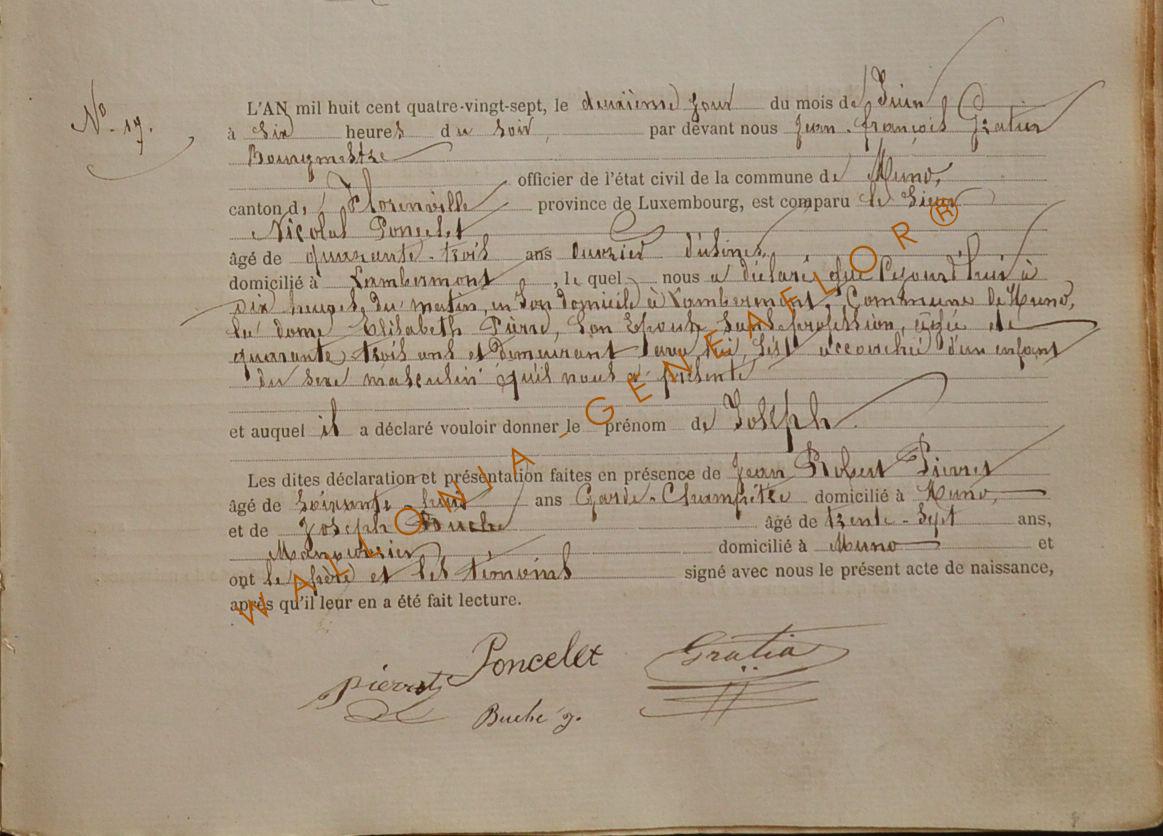 N° 17.
L'AN mil huit cent quatre-vingt-sept, le deuxième jour du mois de Juin
à six heures du soir, par devant nous Jean-François Gratia
Bourgmestre
officier de l'état civil de la commune de Muno,
canton de Florenville province de Luxembourg, est comparu le Sieur
Nicolas Poncelet
âgé de quarante-trois ans ouvrier d'usines,
domicilié à Lambermont, le quel nous a déclaré que cejourd'hui à
dix heures du matin, en son domicile à Lambermont, Commune de Muno,
la dame Elisabeth Pierre, son épouse sans profession, âgée de
quarante trois ans et demeurant avec lui, s'est accouchée d'un enfant
du sexe masculin qu'il nous a présenté
et auquel il a déclaré vouloir donner le prénom de Joseph
Les dites déclaration et présentation faites en présence de Jean Robert Pierret
âgé de soixante ans Garde-Champêtre domicilié à Muno,
et de Joseph Buche âgé de trente-sept ans,
domicilié à Muno et
ont le père et les témoins signé avec nous le présent acte de naissance,
après qu'il leur en a été fait lecture.
Pierret Poncelet Gratia
Buche J.
WALLONIA-GENEAFLOR®